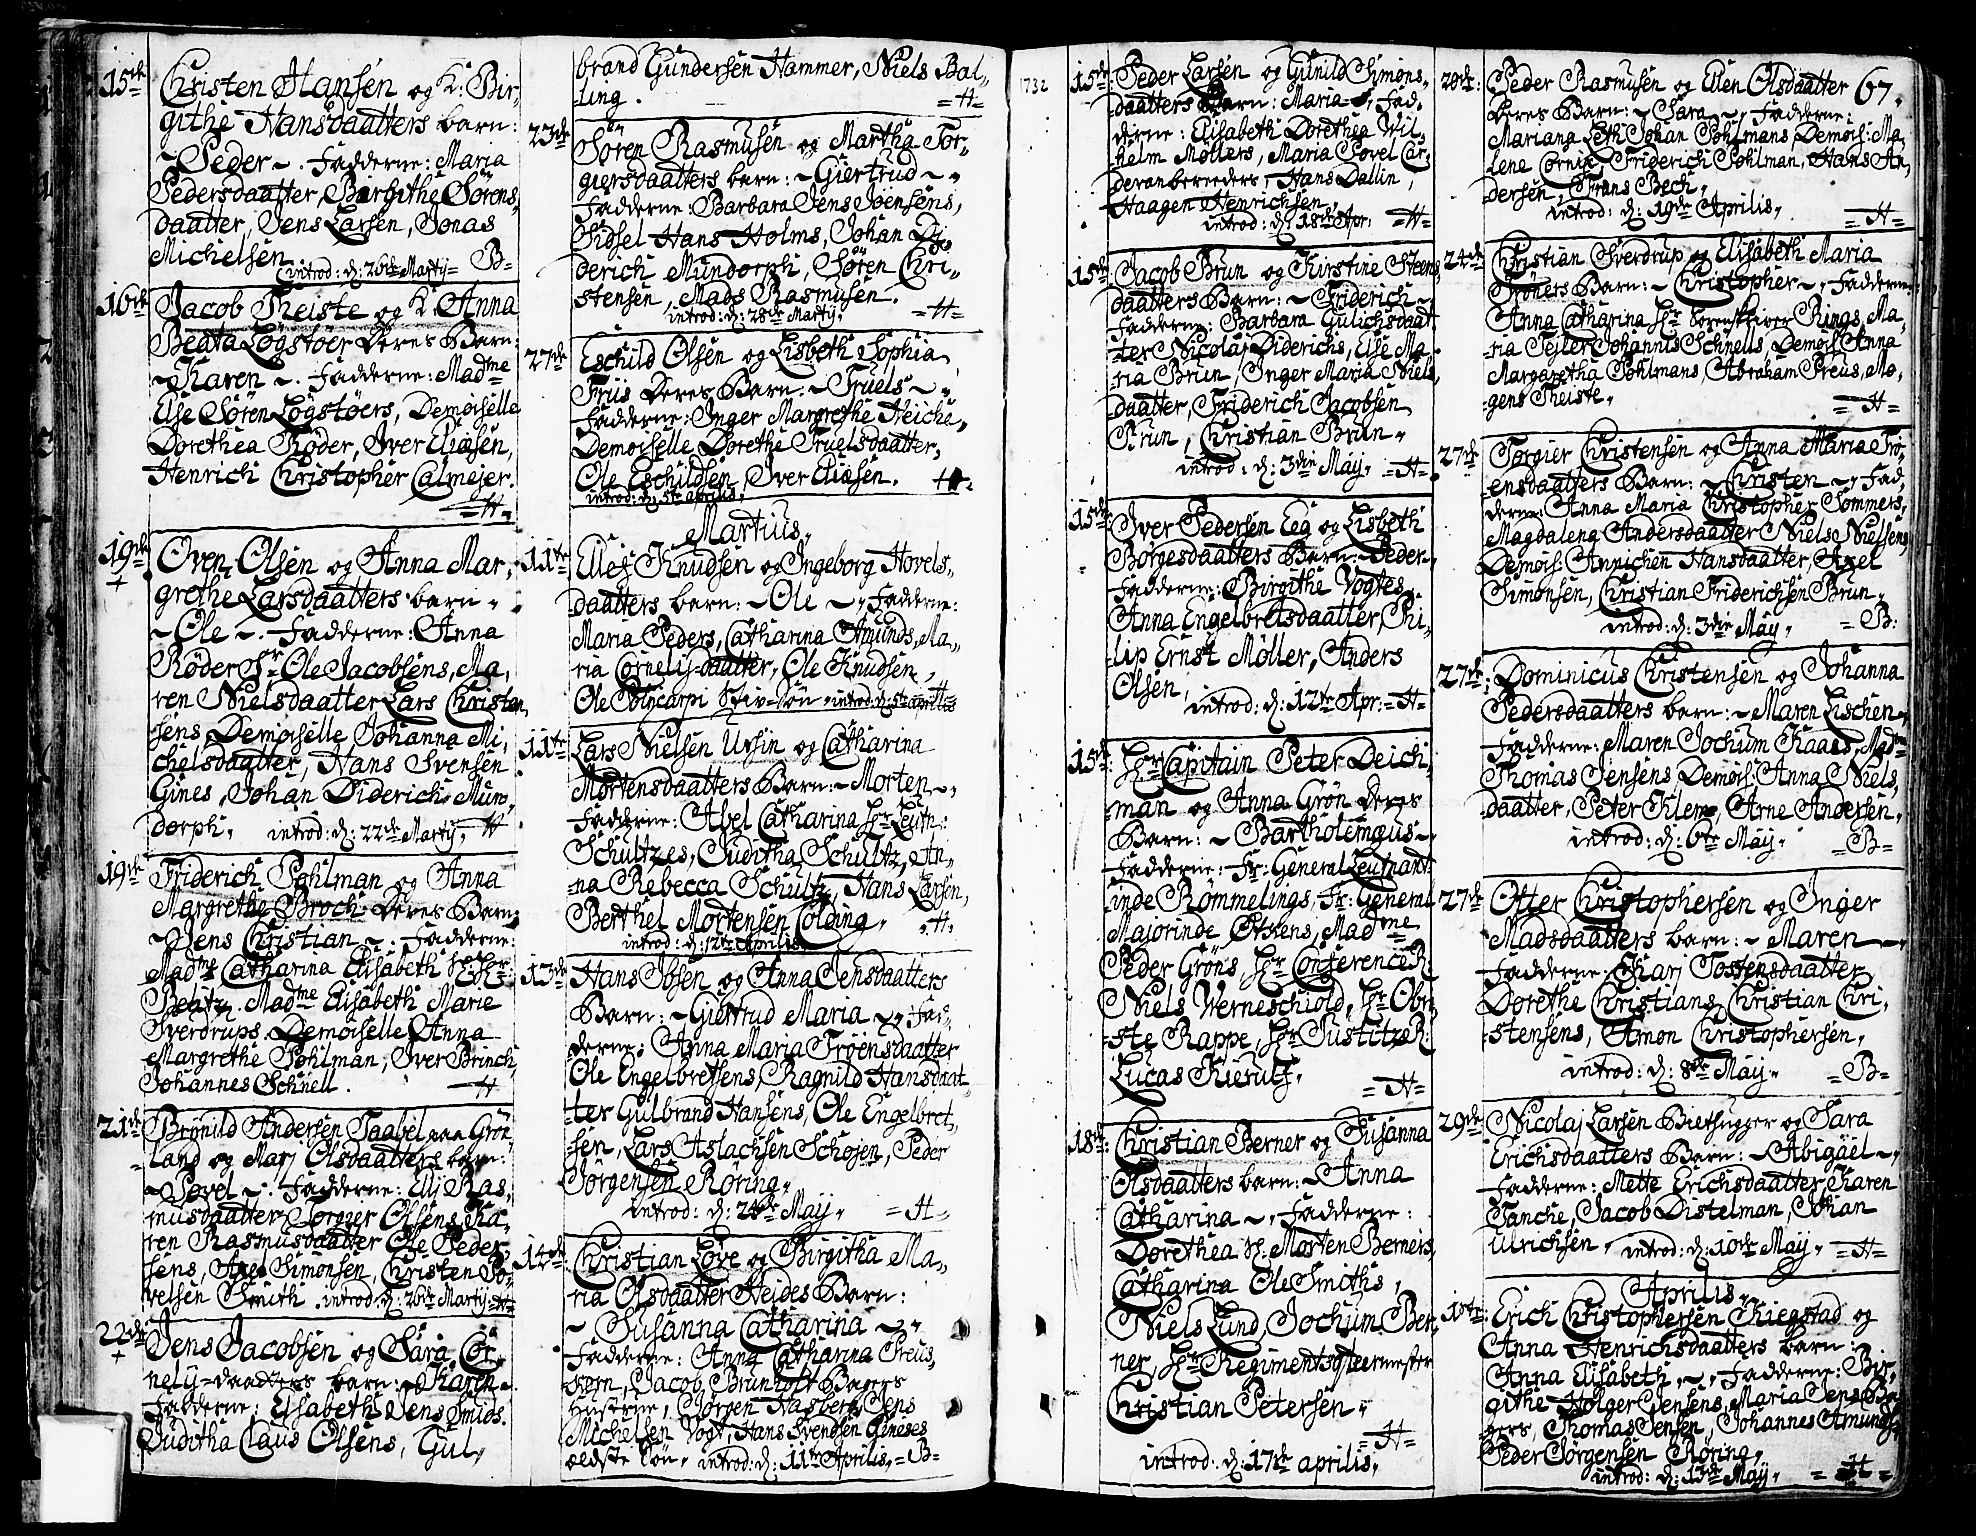 15de
Christen Hansen og K: Bir-
githe Hansdaatters barn:
~Peder~. Fadderne: Maria
Pedersdaatter, Birgithe Sørens,
daatter, Jens Larsen, Jonas
Michelsen
introd: d: 26de Martij= B=
16de
Jacob Theiste og K: Anna
Beata Løgstøer Deres Barn:
~Karen~. Fadderne: Madme
Else Søren Løgstøers, Demoiselle
Dorethea Røder, Iver Eliæsen,
Henrich Christopher Calmejer.
=H=
19de
+
Oven Olsen og Anna Mar,
grethe Larsdaatters barn
~Ole~. Fadderne: Anna
Røder Hr Ole Jacobsens, Ma,
ren Nielsdaatter Lars Christen
sens Demoiselle Johanna Mi,
chelsdaatter, Hans Svensen
Gines, Johan Diderich Mun,
dorph, introd: d: 22de Martij, H
19de
Friderich Pohlman og Anna
Margrethe Broch Deres Barn
~Jens Christian~. Fadderne:
Madme Catharina Elisabeth
Madme Elisabeth Marie
Sverdrups Demoiselle Anna
Margrethe Pohlman, Iver Brinch
Johannes Schnell. H
21de
Brønild Andersen Taabel paa Grøn
land og Marj Olsdaatters barn:
~Povel~. Fadderne: Elj Ras,
musdaatter, Torgier Olsens, Ka,
ren Rasmusdaatter Ole Peder,
sens, Axel Simonsen, Christen Po,
velsen Smith. introd: d: 26de Martij =H=
22de
+
Jens Jacobsen og Sara Cor,
nely=daatters barn: ~Karen~
Fadderne: Elisabeth Jens Smids.
Juditha Claus Olsens, Gul,
brand Gundersen Hammer, Niels Bal,
ling. =H=
23de
Søren Rasmusen og Martha Tor,
giersdaatters barn: ~Giertrud~
Fadderne: Barbara Jens Joensens,
Sidsel Hans Holms, Johan Di,
derich Mundorph, Søren Chri,
stensen, Mads Rasmusen.
introd: d: 28de Martij, =H=
27de
Eschild Olsen og Lisbeth Sophia
Friis Deres Barn: ~Truels~
Fadderne: Inger Margrethe Heiche,
Demoiselle Dorethe Truelsdaatter,
Ole Eschildsen, Iver Eliæsen. H.
introd: d: 5te aprilis,
Martius
11te
Ellej Knudsen og Ingeborg Hovels,
daatters barn: ~Ole~, Fadderne:
Maria Peders, Catharina Amunds, Ma,
ria Cornelij=daatter, Ole Knudsen,
Ole Policarpi Stiv-søn introd: d: 5te aprilis =H=
11te
Lars Nielsen Ursin og Catharina
Mortensdaatters Barn: ~Morten~,
Fadderne: Abel Catharina Hr Leutn:
Schultzes, Juditha Schultz, An,
na Rebecca Schultz, Hans Larsen,
Berthel Mortensen Colding, H.
introd: d: 12te Aprilis
13de
Hans Ibsen og Anna Jensdaatters
Barn: ~Giertrud Maria~, Fad,
derne: Anna Maria Troensdaatter
Ole Engelbretsens, Ragnild Hansdaat
ter Gulbrand Hansens, Ole Engelbret,
sen, Lars Aslachsen Schøjen, Peder
Jørgensen Røring,
introd: d: 24de Maij, =H=
14de
Christian Løve og Birgitha Ma,
ria Olsdaatter Heides Barn:
~Susanna Catharina~
Fadderne: Anna Catharina Preus,
søen, Jacob Brunholt Bagers
hustrue, Jørgen Hasberg, Jens
Michelsen Vogt, Hans Svendsen Gineses
ældste søn, introd: d: 11te Aprilis, =B=
1732
15de
Peder Larsen og Gunild Simons,
daatters Barn: Maria, Fad,
derne: Elisabeth Dorethea Wil,
helm Møllers, Maria Povel Car,
devanbereeders, Hans Dallin,
Haagen Henrichsen,
introd: d: 18de Apr: =H=
15de
Jacob Brun og Kirstine Steens,
daatters Barn: ~Friderich~,
Fadderne: Barbara Gulichsdaat,
ter Nicolaj Diderichs, Else Ma,
ria Brun, Inger Maria Niels,
daatter, Friderich Jacobsen
Brun, Christian Brun,
introd: d: 3die Maij, =H=
15de
Iver Pedersen Eeg og Lisbeth
Borgesdaatters Barn: ~Peder~,
Fadderne: Birgithe Vogtes,
Anna Engelbretsdaatter, Phi,
lip Ernst Møller, Anders
Olsen, introd: d: 12te Apr: =H=
15de
Hr Capitain Peter Deich,
man og Anna Grøn Deres
Barn: ~Bartholemæus~
Fadderne: Fr: General Leutnant,
inde Rømmelings, Fr: General
Majorinde Øtkens, Madme
Peder Grøns, Hr Conference R:
Niels Werneschiold, Hr Obri,
ste Rappe, Hr Justitz R:
Lucas Kierulf,
=H=
18de
Christian Berner og Susanna
Olsdaatters barn: ~Anna
Catharina~, Fadderne:
Dorethea H: Morten Berners,
Catharina Ole Smiths,
Niels Lund, Jochum Ber,
ner, Hr Regimentsqvartermester
Christian Petersen,
=H=
introd: d: 17de aprilis,
20de
Peder Rasmusen og Ellen Olsdaatter 67.
Deres Barn: ~Sara~, Fadderne:
Mariana Leth Johan Pohlmans, Demois: Ma,
lene Cornix, Friderich Pohlman, Hans An,
dersen, Frans Bech,
introd: d: 19de Aprilis, =H=
24de
Christian Sverdrup og Elisabeth Maria
Trøners Barn: ~Christopher~, Fadderne:
Anna Catharina Hr Sorenskriver Rings, Ma,
ria Seiler Johannis Schnells, Demois: Anna
Margaretha Pohlmans, Abraham Preus, Mo,
gens Theiste, =H=
27de
Torgier Christensen og Anna Maria Tro,
ensdaatters Barn: ~Christen~, Fad,
derne: Anna Maria Christopher Sommers,
Magdalena Andersdaatter Niels Nielsens,
Demois: Annichen Hansdaatter, Axel
Simonsen, Christian Friderichsen Brun,
introd: d: 3die Maij, =B:
27de
Dominicus Christensen og Johanna
Pedersdaatters barn: ~Maren Lischen~,
Fadderne: Maren Jochum Kaaes, Madme
Thomas Jensens, Demois: Anna Niels,
daatter, Peter Klem, Arne Andersen,
introd: d: 6te Maij, =B=
27de
Otter Christophersen og Inger
Madsdaatters barn: ~Maren~
Fadderne: Karj Tostensdaatter
Dorethe Christians, Christian Chri,
stensens, Amon Christophersen,
introd: d: 8de Maij, =B=
29de
Nicolaj Larsen Biethugger og Sara
Erichsdaatters Barn: ~Abigäel~,
Fadderne: Mette Erichsdaatter, Karen
Tanche, Jacob Distelman, Johan
Ulrichsen, introd: d: 10de Maij, =H=
Aprilis,
1ste
Erich Christophersen Kiegstad og
Anna Henrichsdaatters barn:
Anna Elisabeth~, Fadderne: Bir,
githe Holger Jensens, Maria Jens Ba,
gers, Thomas Jensen, Johannes Amunds,
Peder Jørgensen Røring,
introd: d: 13de Maij, =H=